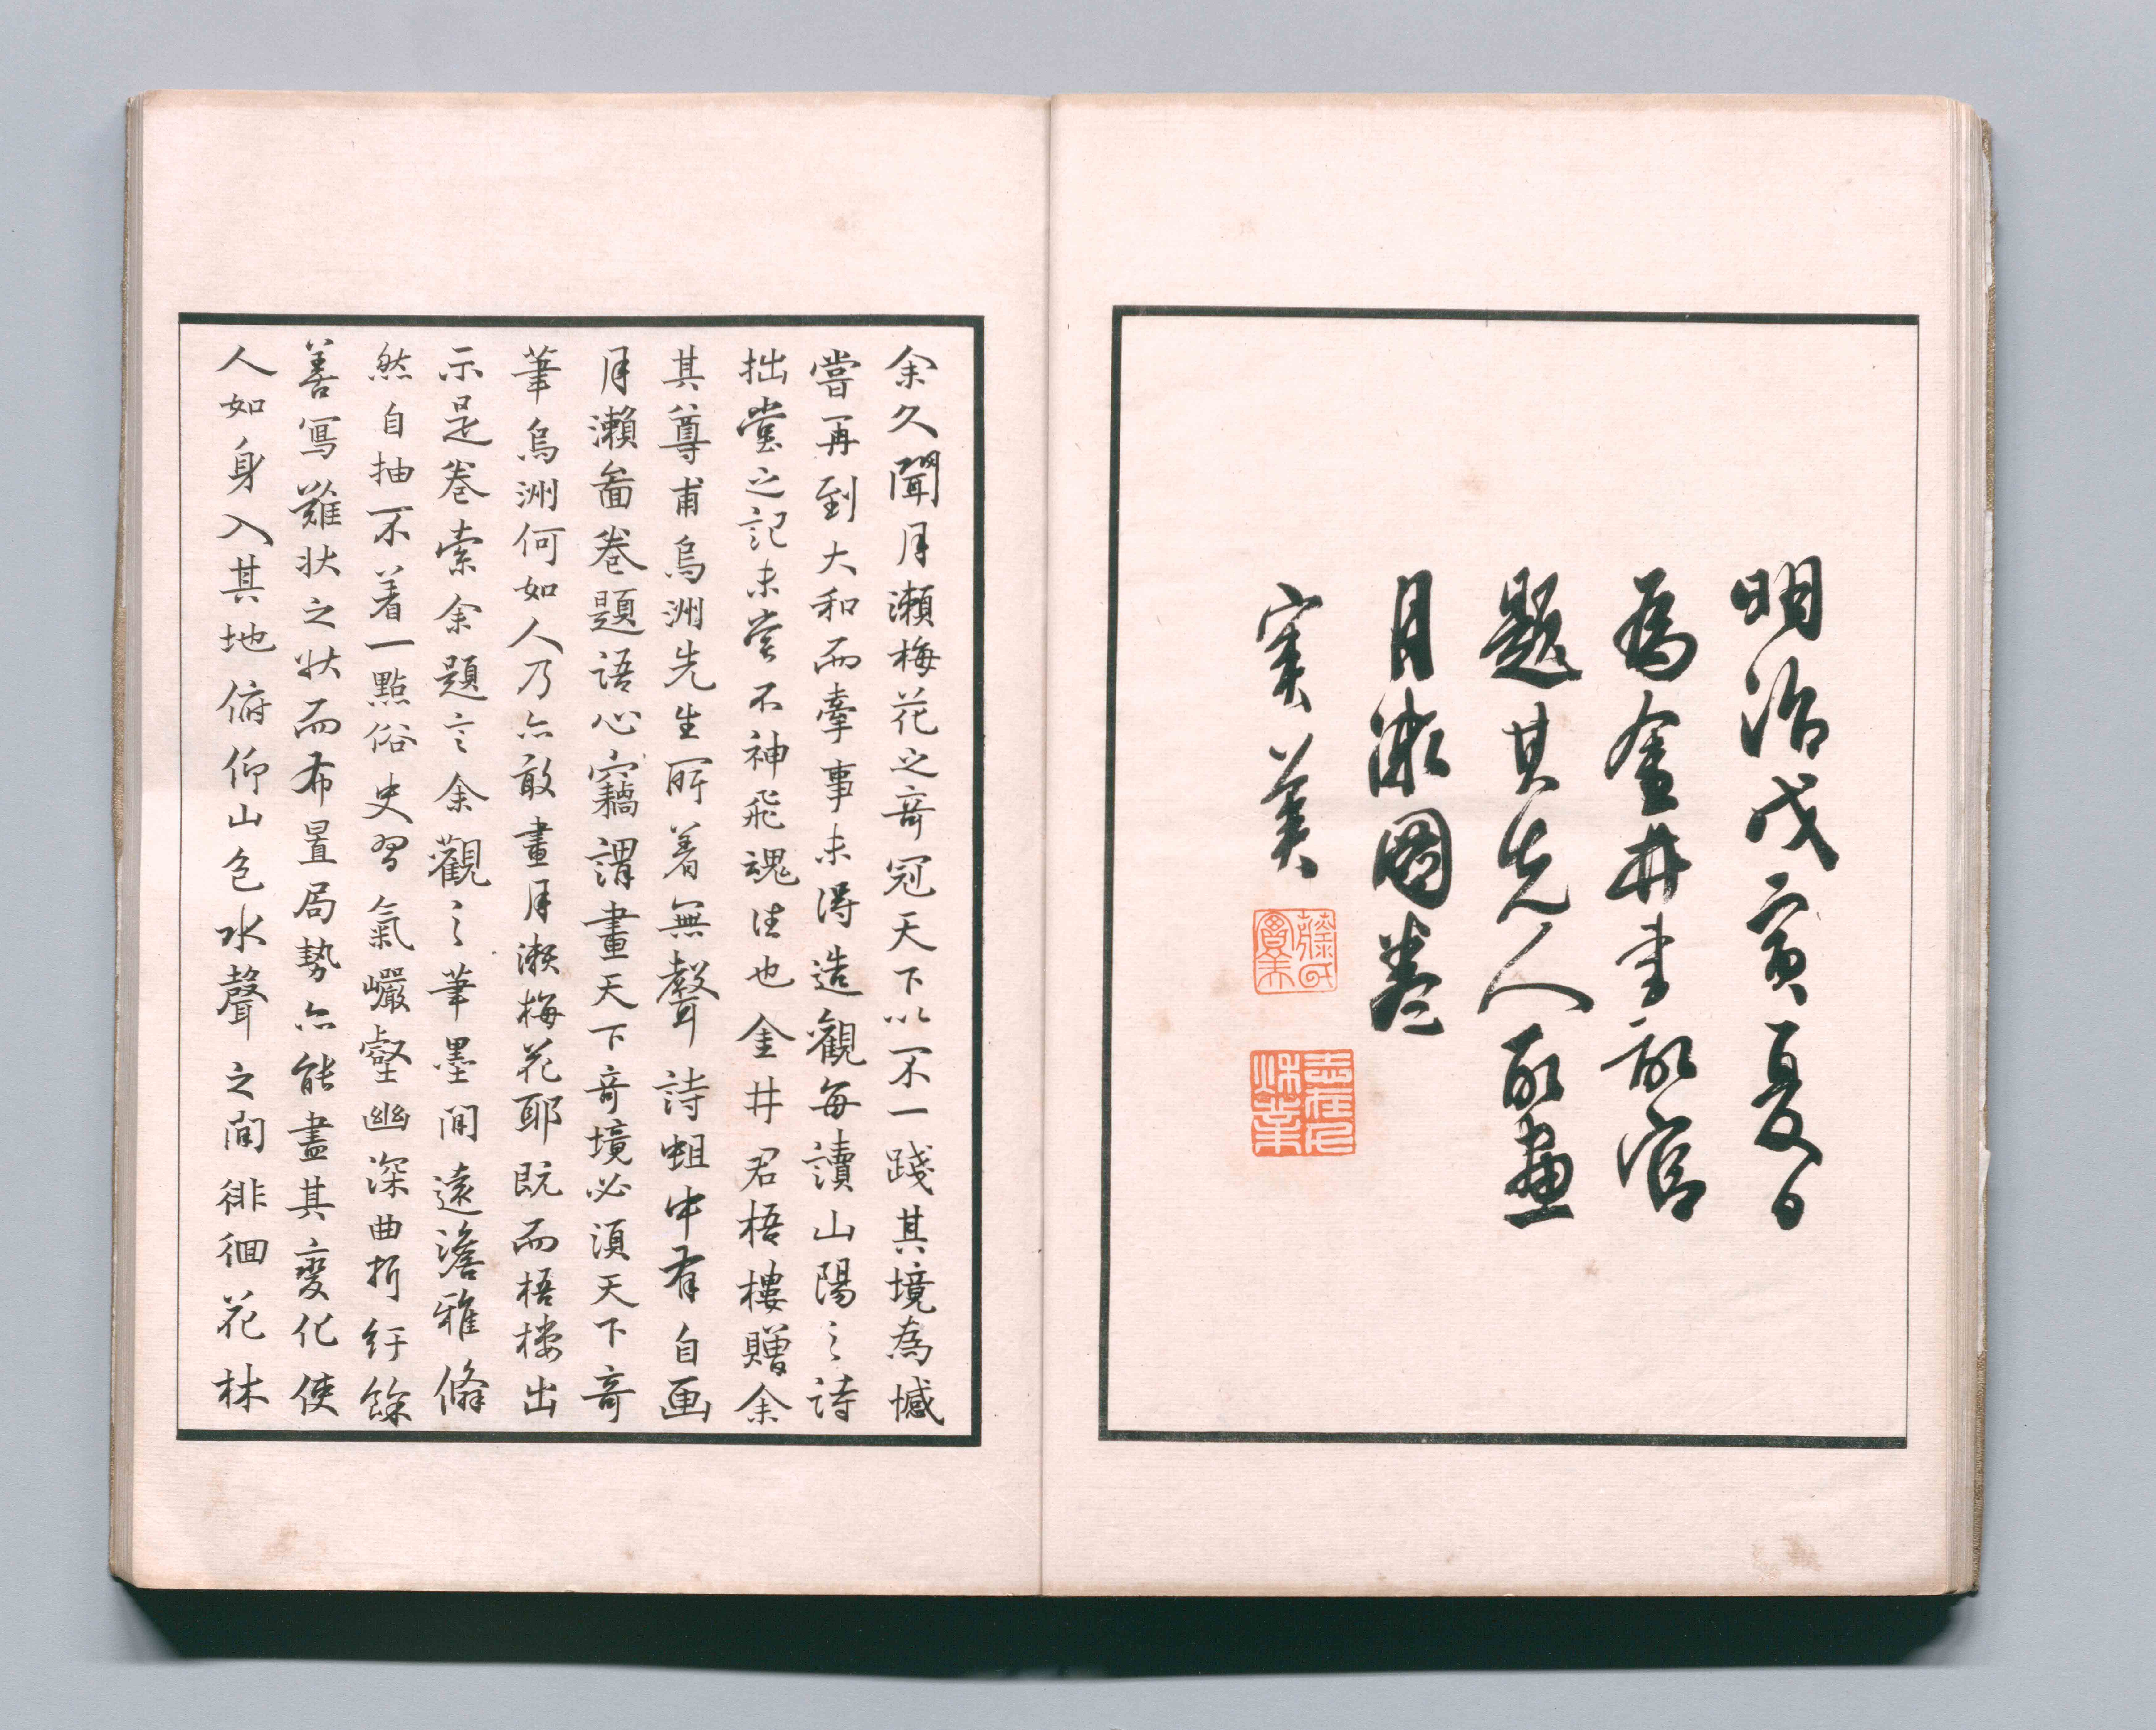 明治戊寅夏日
為金井書記官
題其先人所畫
月瀬圖卷
実美
藤氏實美
余久聞月瀬梅花之竒冠天下以不一踐其境為憾
嘗再到大和而牽事未得造觀每讀山陽之詩
拙堂之記未嘗不神飛魂往也金井君梧樓贈余
其尊甫烏洲先生所着無聲詩蛆中有自画
月瀬啚卷題語心竊謂畫天下竒境必須天下竒
筆烏洲何如人乃亦敢畫月瀬梅花耶既而梧楼出
示是卷索余題言余觀之筆墨閒遠澹雅翛
然自抽不着一點俗史習氣巗壑幽深曲折紆餘
善寫難状之状而布置局勢亦能盡其变化使
人如身入其地俯仰山色水聲之间徘徊花林